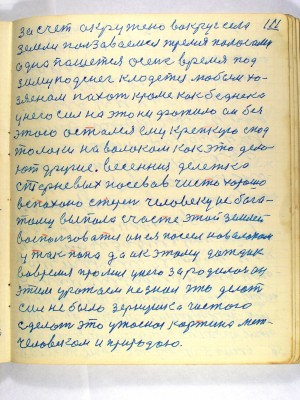 111
за счет окружено вокруг села
земли показаемся тремя полосами
одна пашется осень время под
зиму под снег кладется любым хо-
зяеном пахот кроме как бедняка
у него сил на это не было он без
этого остался ему крепкую под
полоски на волоком как это дела-
ют другие. весенния дележка
старневых посевов чисто хорошо
вспахано стует человеку не бога-
тому выпола счастье этой землей
воспользоватся он ея посеял
у так попа да и к этому дождик
вовремя промил у него зародилось
этим урожаем не зная это делат
сил не было зернушка чистого
сделат это ужасная картина меж-
человеком и природою.